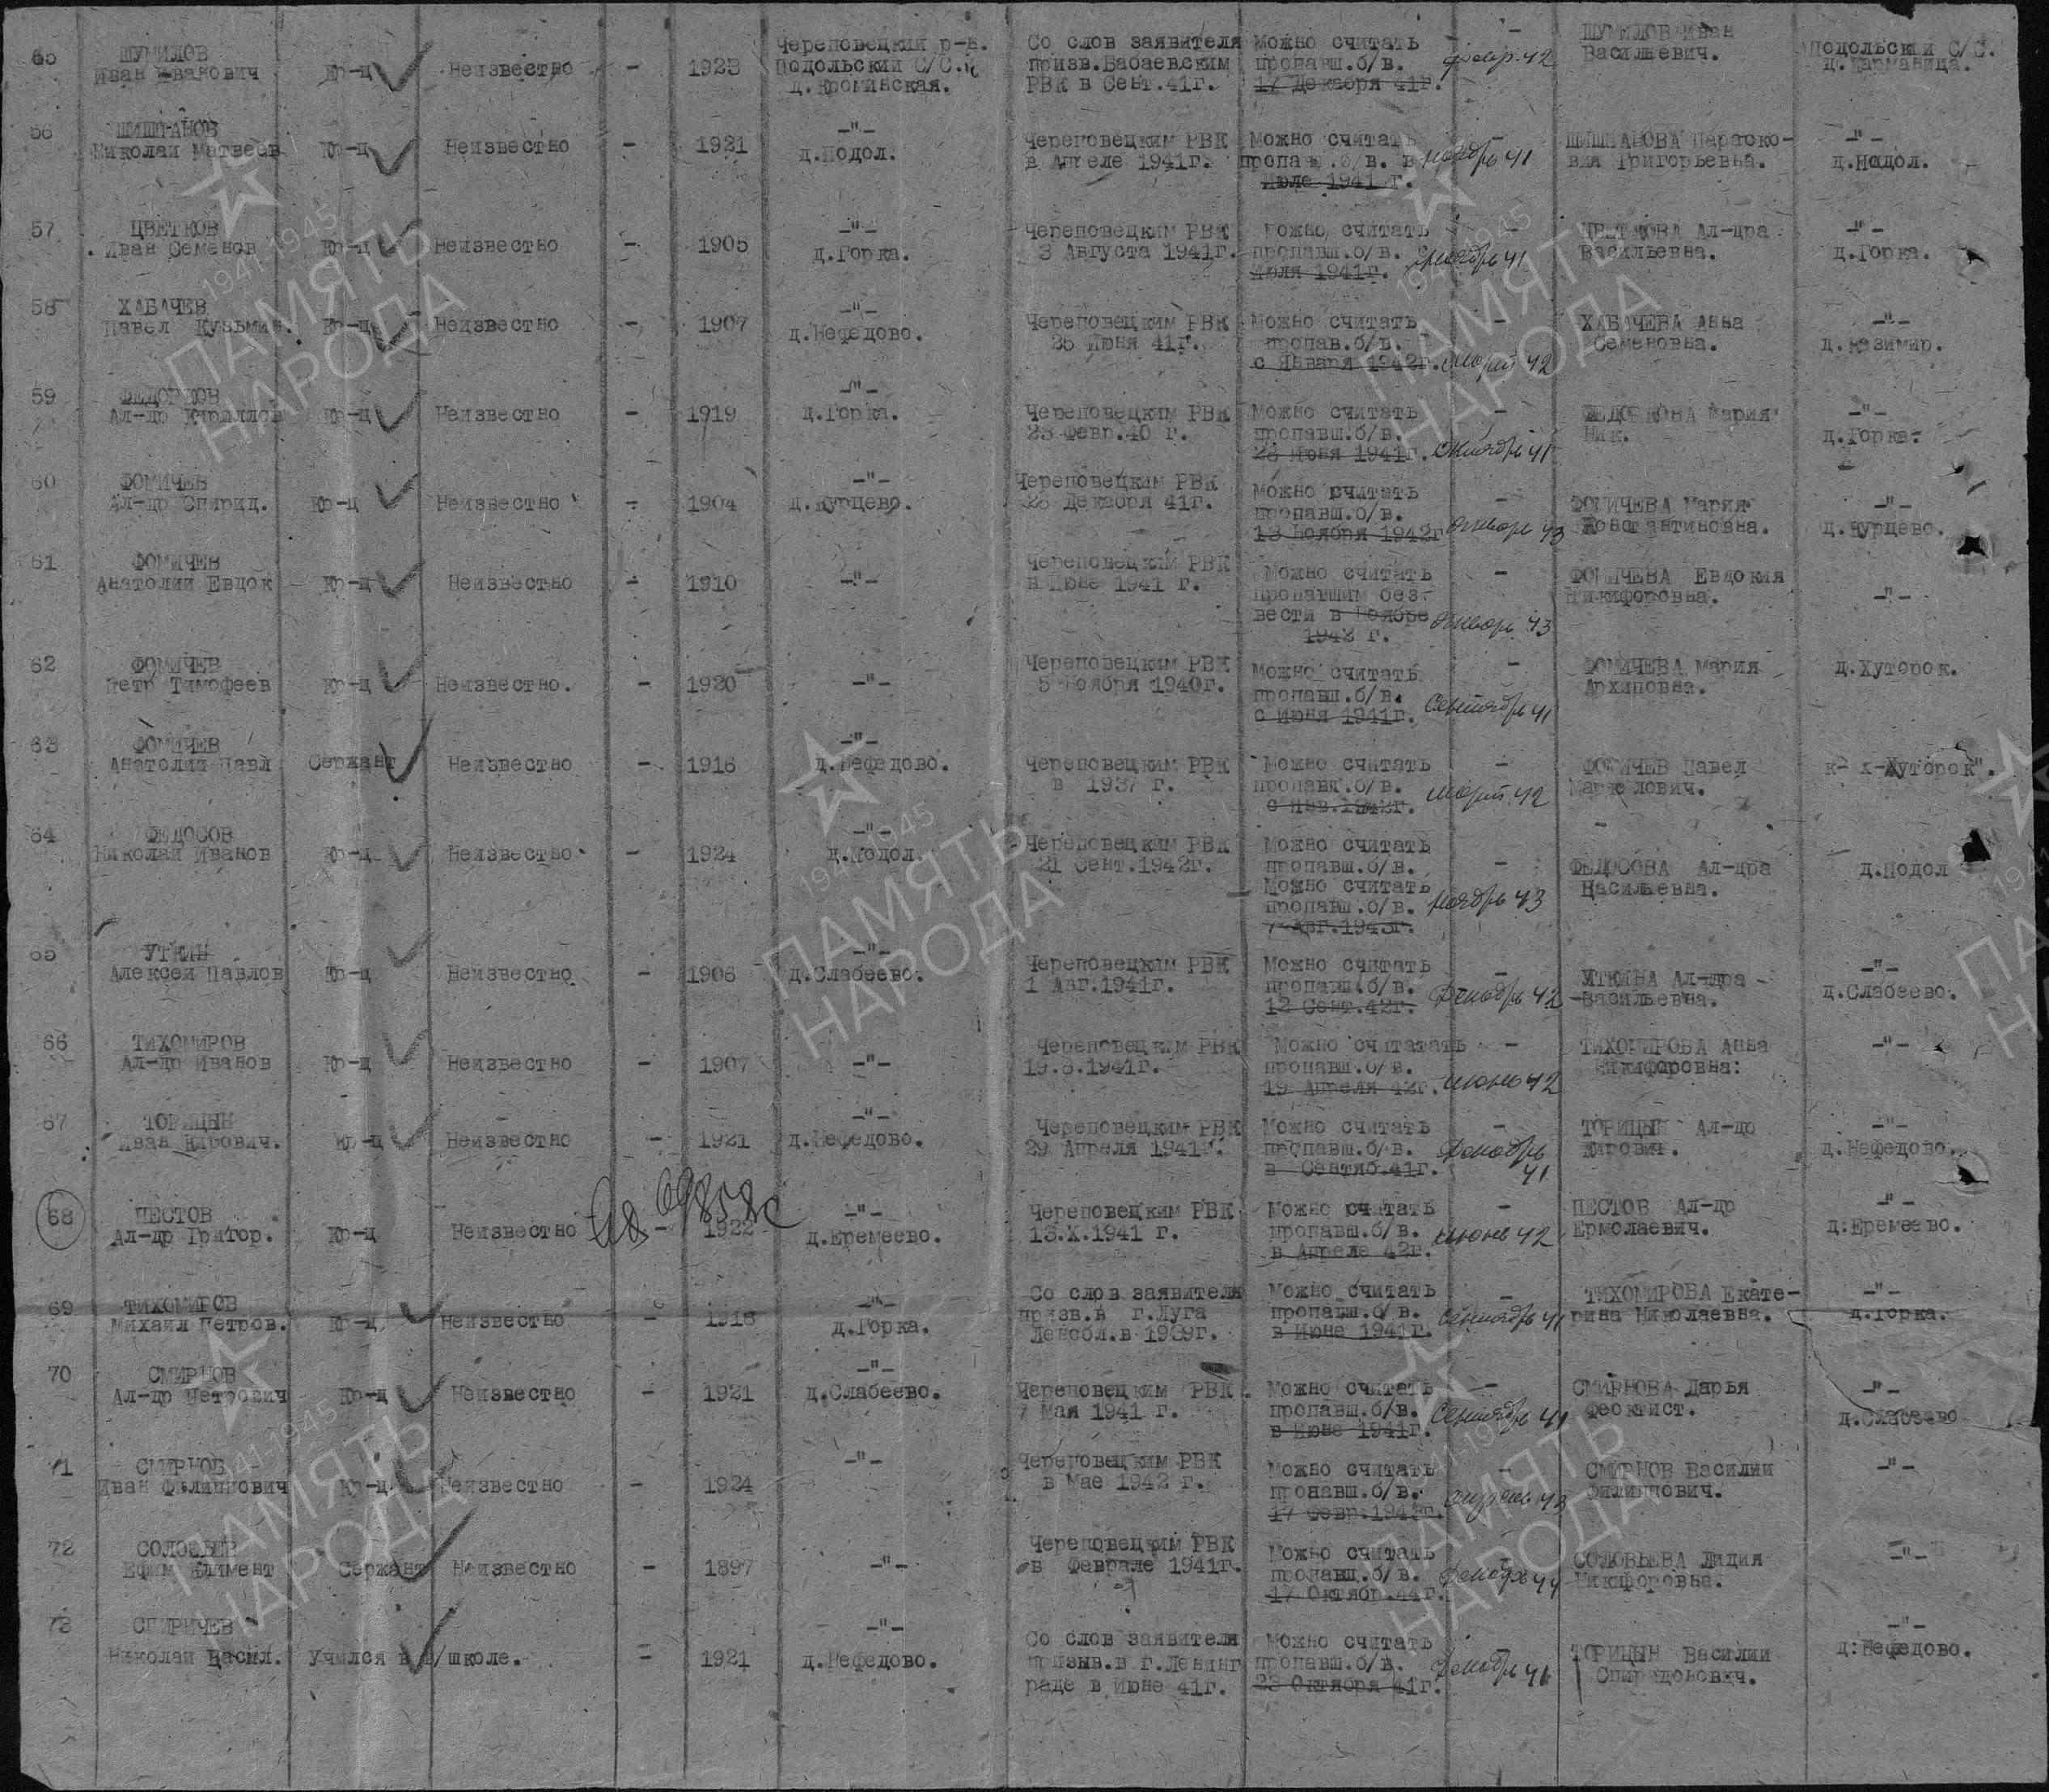 ШУМИЛОВ
Иван Иванович
Кр-ц
Неизвестно
-
1923
Череповецкий р-н.
Подольский С/С.
Со слов заявителя
призв.Бабаевским
РВК в Сент.41г.
Можно считать
пропавш.б/в.
17 Декабря 41г.
февр. 42
-
ШУМИЛОВ Иван
Васильевич.
Подольский С/С.
56
Николай Матвеев
Кр-ц
Неизвестно
-
1921
-"-
д.Подол.
Череповецким РВК
в Апреле 1941г.
Можно считать
пропавш.б/в. в
Июле 1941 г.
ноябрь 41
-
вия Григорьевна.
-"-
57
ЦВЕТКОВ
Иван Семенов
Кр-ц
Неизвестно
-
1905
-"-
д.Горка.
Череповецким РВК
3 Августа 1941г.
Можно считать
пропавш.б/в.
Июля 1941г.
-
ЦВЕТКОВА Ал-дра
Васильевна.
-"-
д.Горка.
58
ХАБАЧЕВ
Павел Кузьмич.
Кр-ц
Неизвестно
-
1907
-"-
д.Нефедово.
Череповецким РВК
25 Июня 41г.
Можно считать
пропав.б/в.
с Января 1942г.
март 42
-
ХАБАЧЕВА Анна
Семеновна.
-"-
д.Казимир.
59
Ал-др Кириллов
Кр-ц
Неизвестно
-
1919
-"-
д.Горка.
Череповецким РВК
23 Февр.40 г.
Можно считать
пропавш.б/в.
23 Июня 1941г.
-
Мария
Ник.
-"-
д.Горка.
60
ФОМИЧЕВ
Ал-др Спирид.
Кр-ц
Неизвестно
-
1904
-"-
д.Курцево.
Череповецким РВК
Декабря 41г.
Можно считать
пропавш.б/в.
13 Ноября 1942г
январь 43
-
ФОМИЧЕВА Мария
Константиновна.
-"-
д.Курцево.
61
ФОМИЧЕВ
Анатолий Евдок
Кр-ц
Неизвестно
-
1910
-"-
Череповецкий РВК
в Июне 1941 г.
Можно считать
пропавшим без-
вести в Ноябре
1942 г.
январь 43
-
ФОМИЧЕВА Евдокия
Никифоровна.
-"-
62
ФОМИЧЕВ
Петр Тимофеев
Кр-ц
Неизвестно.
-
1920
-"-
Череповецким РВК
5 Ноября 1940г.
Можно считать
пропавш.б/в.
с Июня 1941г.
Сентябрь 41
-
ФОМИЧЕВА Мария
Архиповна.
д.Хуторок.
63
ФОМИЧЕВ
Анатолий Павл
Сержант
Неизвестно
-
1916
-"-
д.Нефедово.
Череповецким РВК
в 1937 г.
Можно считать
пропавш.б/в.
с Янв.1942г.
март 42
-
ФОМИЧЕВ Павел
к-х-Хуторок".
64
ФЕДОСОВ
Николай Иванов
Кр-ц
Неизвестно
-
1924
-"-
д.Подол.
Череповецким РВК
21 Сент.1942г.
Можно считать
пропавш.б/в.
Можно считать
пропавш.б/в.
7 Авг.1943г.
ноябрь 43
-
ФЕДОСОВА Ал-дра
Васильевна.
д.Подол
65
УТКИН
Алексей Павлов
Кр-ц
Неизвестно
-
1906
-"-
д.Слабеево.
Череповецким РВК
1 Авг.1941г.
Можно считать
пропавш.б/в.
12 Сент.42г.
Декабрь 42
-
УТКИНА Ал-дра
Васильевна.
-"-
д.Слабеево.
66
ТИХОМИРОВ
Ал-др Иванов
Кр-ц
Неизвестно
-
1907
-"-
Череповецким РВК
19.8.1941г.
Можно считатать
пропавш.б/в.
19 Апреля 42г.
июнь 42
-
ТИХОМИРОВА Анна
Никифоровна:
-"-
67
ТОРИЦЫН
Иван Кирович.
Кр-ц
Неизвестно
-
1921
-"-
д.Нефедово.
Череповецким РВК
29 Апреля 1941г.
Можно считать
пропавш.б/в.
в Сентяб.41г.
Декабрь
41
-
ТОРИЦЫН Ал-др
Кирович.
-"-
д.Нефедово.
68
ПЕСТОВ
Ал-др Григор.
Кр-ц
Неизвестно
69858с
-
1922
-"-
д.Еремеево.
Череповецким РВК
13.X.1941 г.
Можно считать
пропавш.б/в.
в Апреле 42г.
июнь 42
-
ПЕСТОВ Ал-др
Ермолаевич.
-"-
д:Еремеево.
69
ТИХОМИРОВ
Михаил Петров.
Кр-ц
Неизвестно
-
1918
-"-
д.Горка.
Со слов заявителя
призв.в г.Луга
Ленобл.в 1939г.
Можно считать
пропавш.б/в.
в Июне 1941г.
Сентябрь 41
-
ТИХОМИРОВА Екате-
рина Николаевна.
-"-
д.Горка.
70
СМИРНОВ
Ал-др Петрович
Кр-ц
Неизвестно
-
1921
-"-
д.Слабеево.
Череповецким РВК
7 Мая 1941 г.
Можно считать
пропавш.б/в.
в Июне 1941г.
Сентябрь 41
-
СМИРНОВА Дарья
Феоктист.
-"-
д.Слабеево
71
СМИРНОВ
Иван Филиппович
Кр-ц
Неизвестно
-
1924
-"-
Череповецким РВК
в Мае 1942 г.
Можно считать
пропавш.б/в.
17 Февр.1943г.
апрель 43
-
СМИРНОВ Василий
Филиппович.
-"-
72
СОЛОВЬЕВ
Ефим Климент
Сержант
Неизвестно
-
1897
-"-
Череповецким РВК
в Феврале 1941г.
Можно считать
пропавш.б/в.
17 Октябр.44г.
Декабрь 44
СОЛОВЬЕВА Лидия
Никифоровна.
-"-
73
СПИРИЧЕВ
Николай Васил.
Учился в в/школе.
-
1921
-"-
д.Нефедово.
Со слов заявителя
призыв.в г.Ленинг
раде в Июне 41г.
Можно считать
пропавш.б/в.
23 Октября 41г.
Декабрь 41
-
ТОРИЦЫН Василий
Спиридонович.
-"-
д:Нефедово.
1941-1945
ПАМЯТЬ
НАРОДА